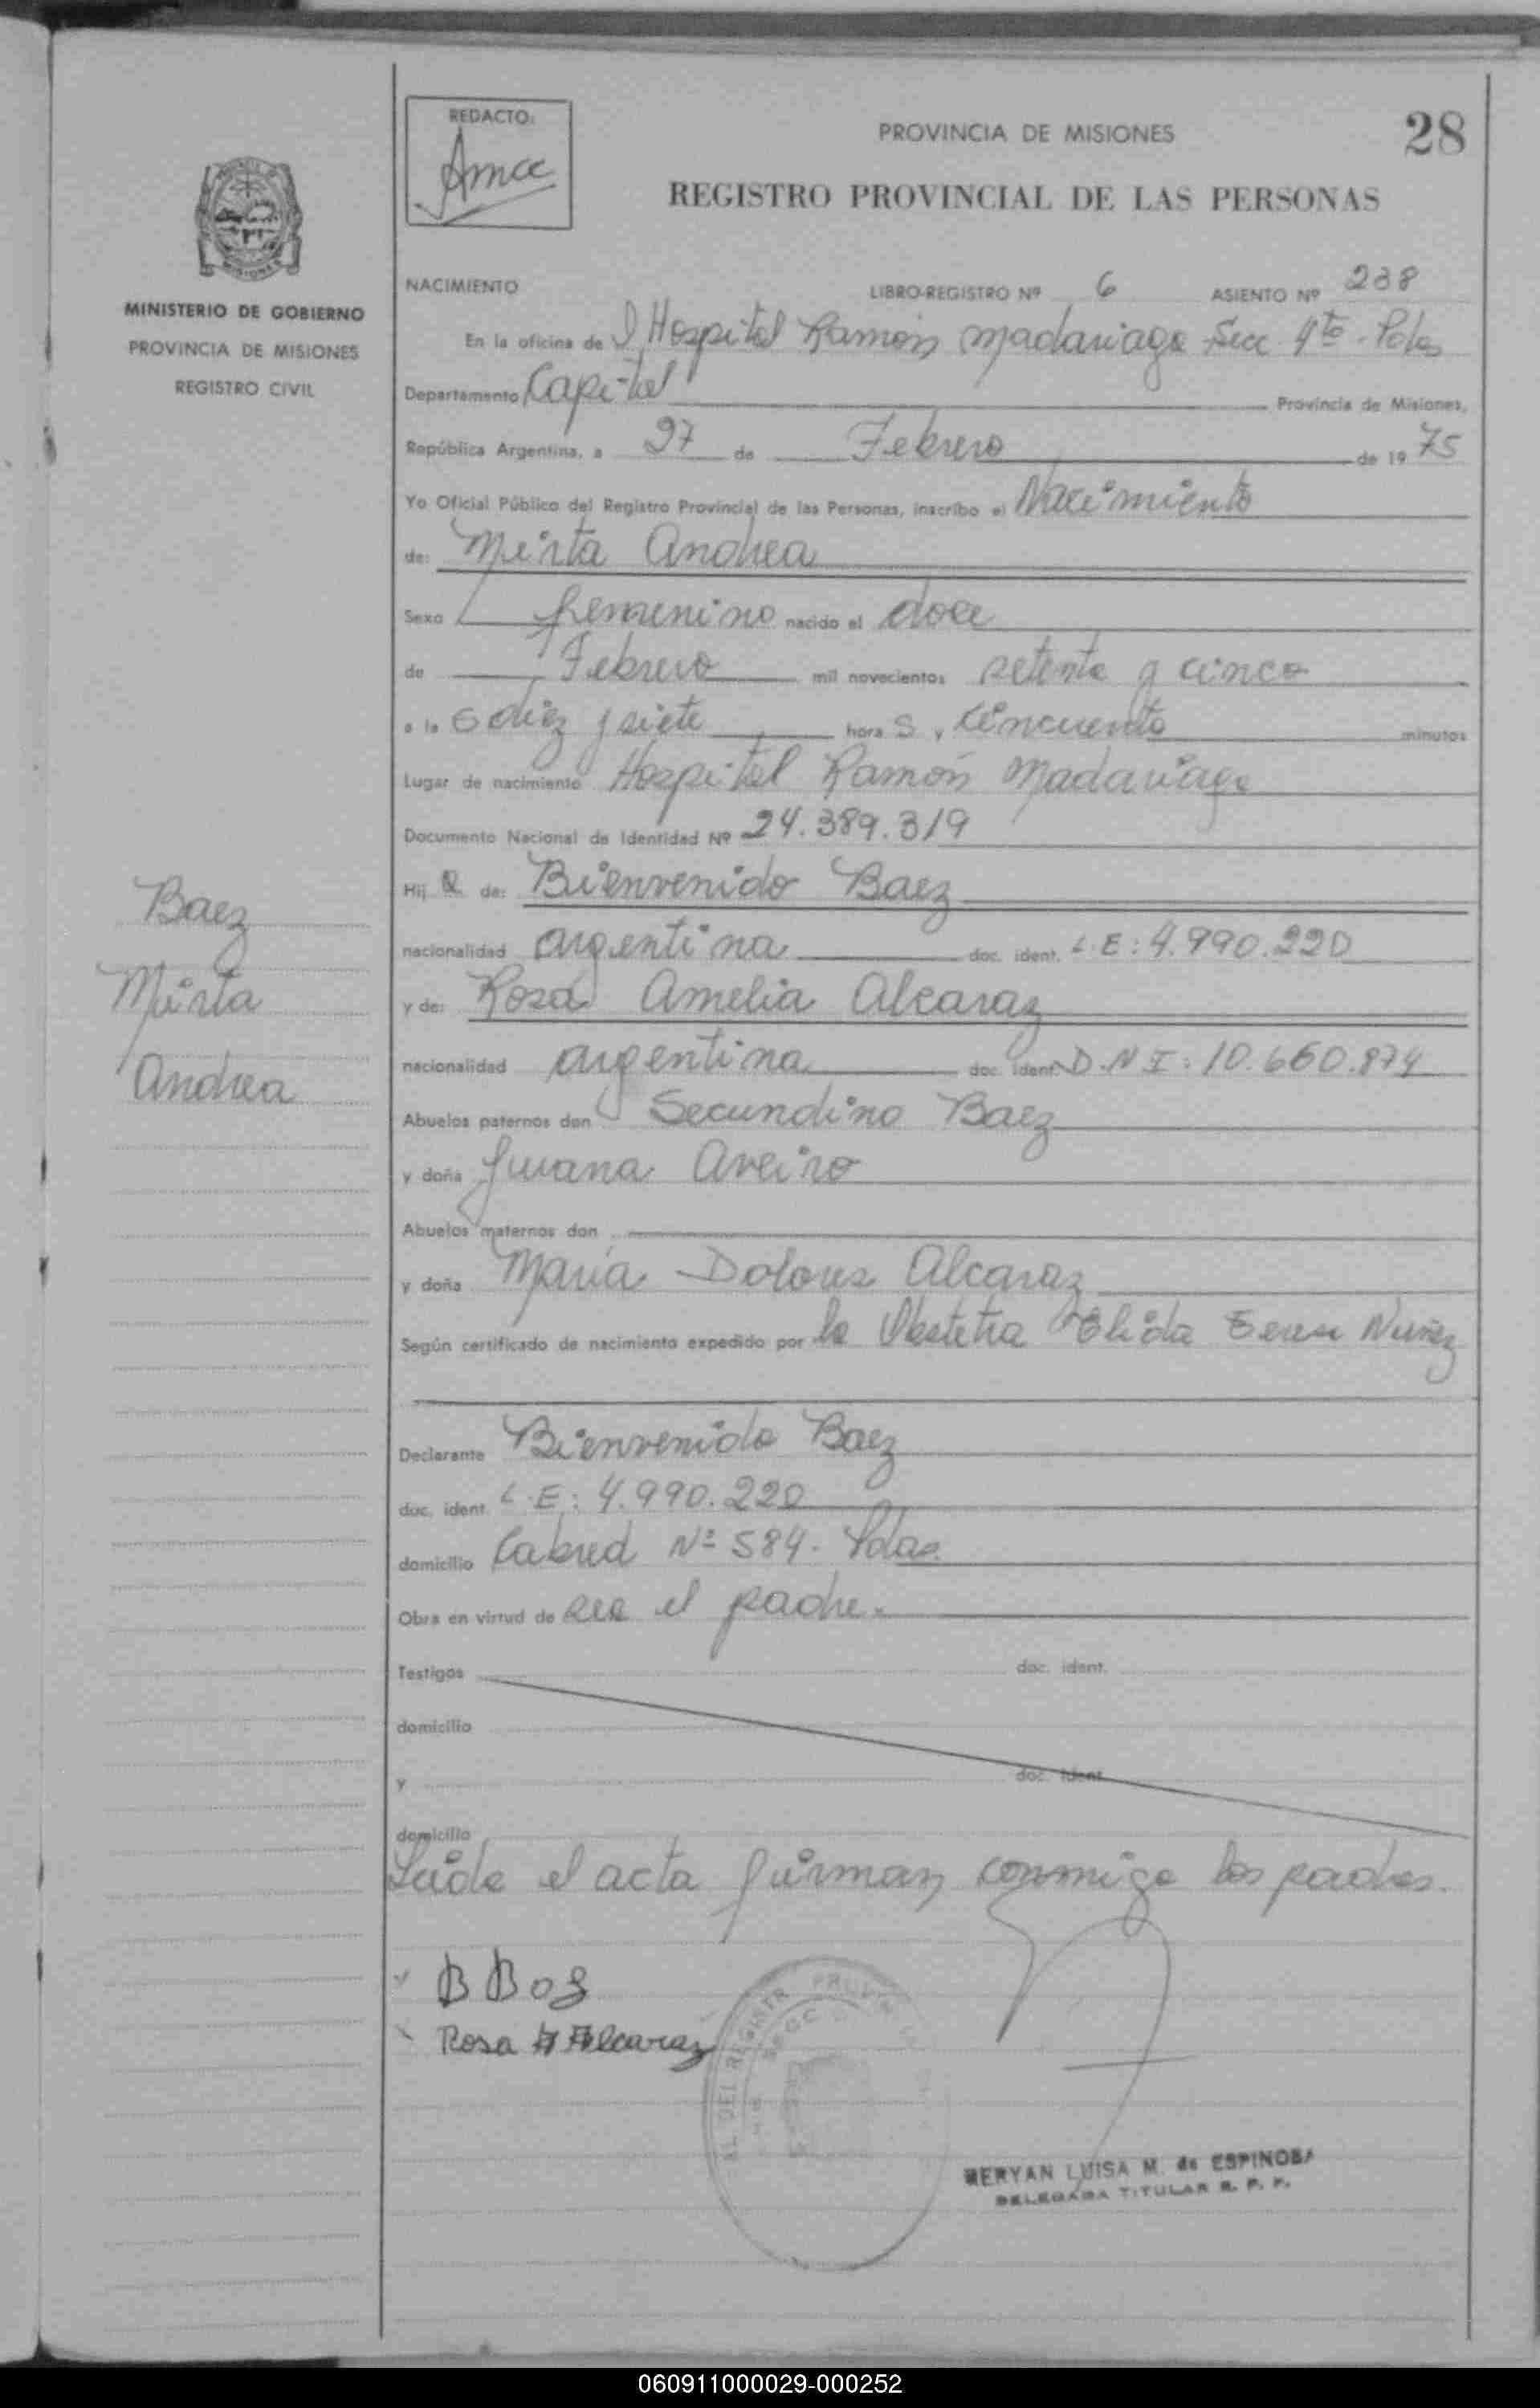 REDACTO:
Amcc
PROVINCIA DE MISIONES
28
REGISTRO PROVINCIAL DE LAS PERSONAS
MINISTERIO DE GOBIERNO
PROVINCIA DE MISIONES
REGISTRO CIVIL
NACIMIENTO
LIBRO-REGISTRO Nº 6 ASIENTO Nº 238
En la oficina de l Hospital Ramón Madariaga Secc 4ta - Pdas
Departamento Capital Provincia de Misiones,
República Argentina, a 27 de Febrero de 19 75
Yo Oficial Público del Registro Provincial de las Personas, inscribo el Nacimiento
de: Mirta Andrea
Sexo femenino nacido el doce
de Febrero mil novecientos setenta y cinco
a la s diez y siete hora s y cincuenta minutos
Lugar de nacimiento Hospital Ramón Madariaga
Documento Nacional de Identidad Nº 24.389.319
Hij a de: Bienvenido Baez
nacionalidad argentina doc. ident. L.E: 4.990.220
y de: Rosa Amelia Alcaraz
nacionalidad argentina doc. ident D.N.I: 10.660.874
Abuelos paternos don Secundino Baez
y doña Juana Aveiro
Abuelos maternos don
y doña María Dolores Alcaraz
Según certificado de nacimiento expedido por la Obstetra Elida Nuñez
Declarante Bienvenido Baez
doc. ident. L.E: 4.990.220
domicilio Cabred Nº 584. Pdas.
Obra en virtud de ser el padre.
Testigos doc. ident.
domicilio
y doc. ident.
domicilio
Leida el acta firman conmigo los padres.
Baez
Mirta
Andrea
B B
Rosa A Alcaraz
LUISA M. de ESPINOSA
DELEGADA TITULAR R. P. P.
060911000029-000252